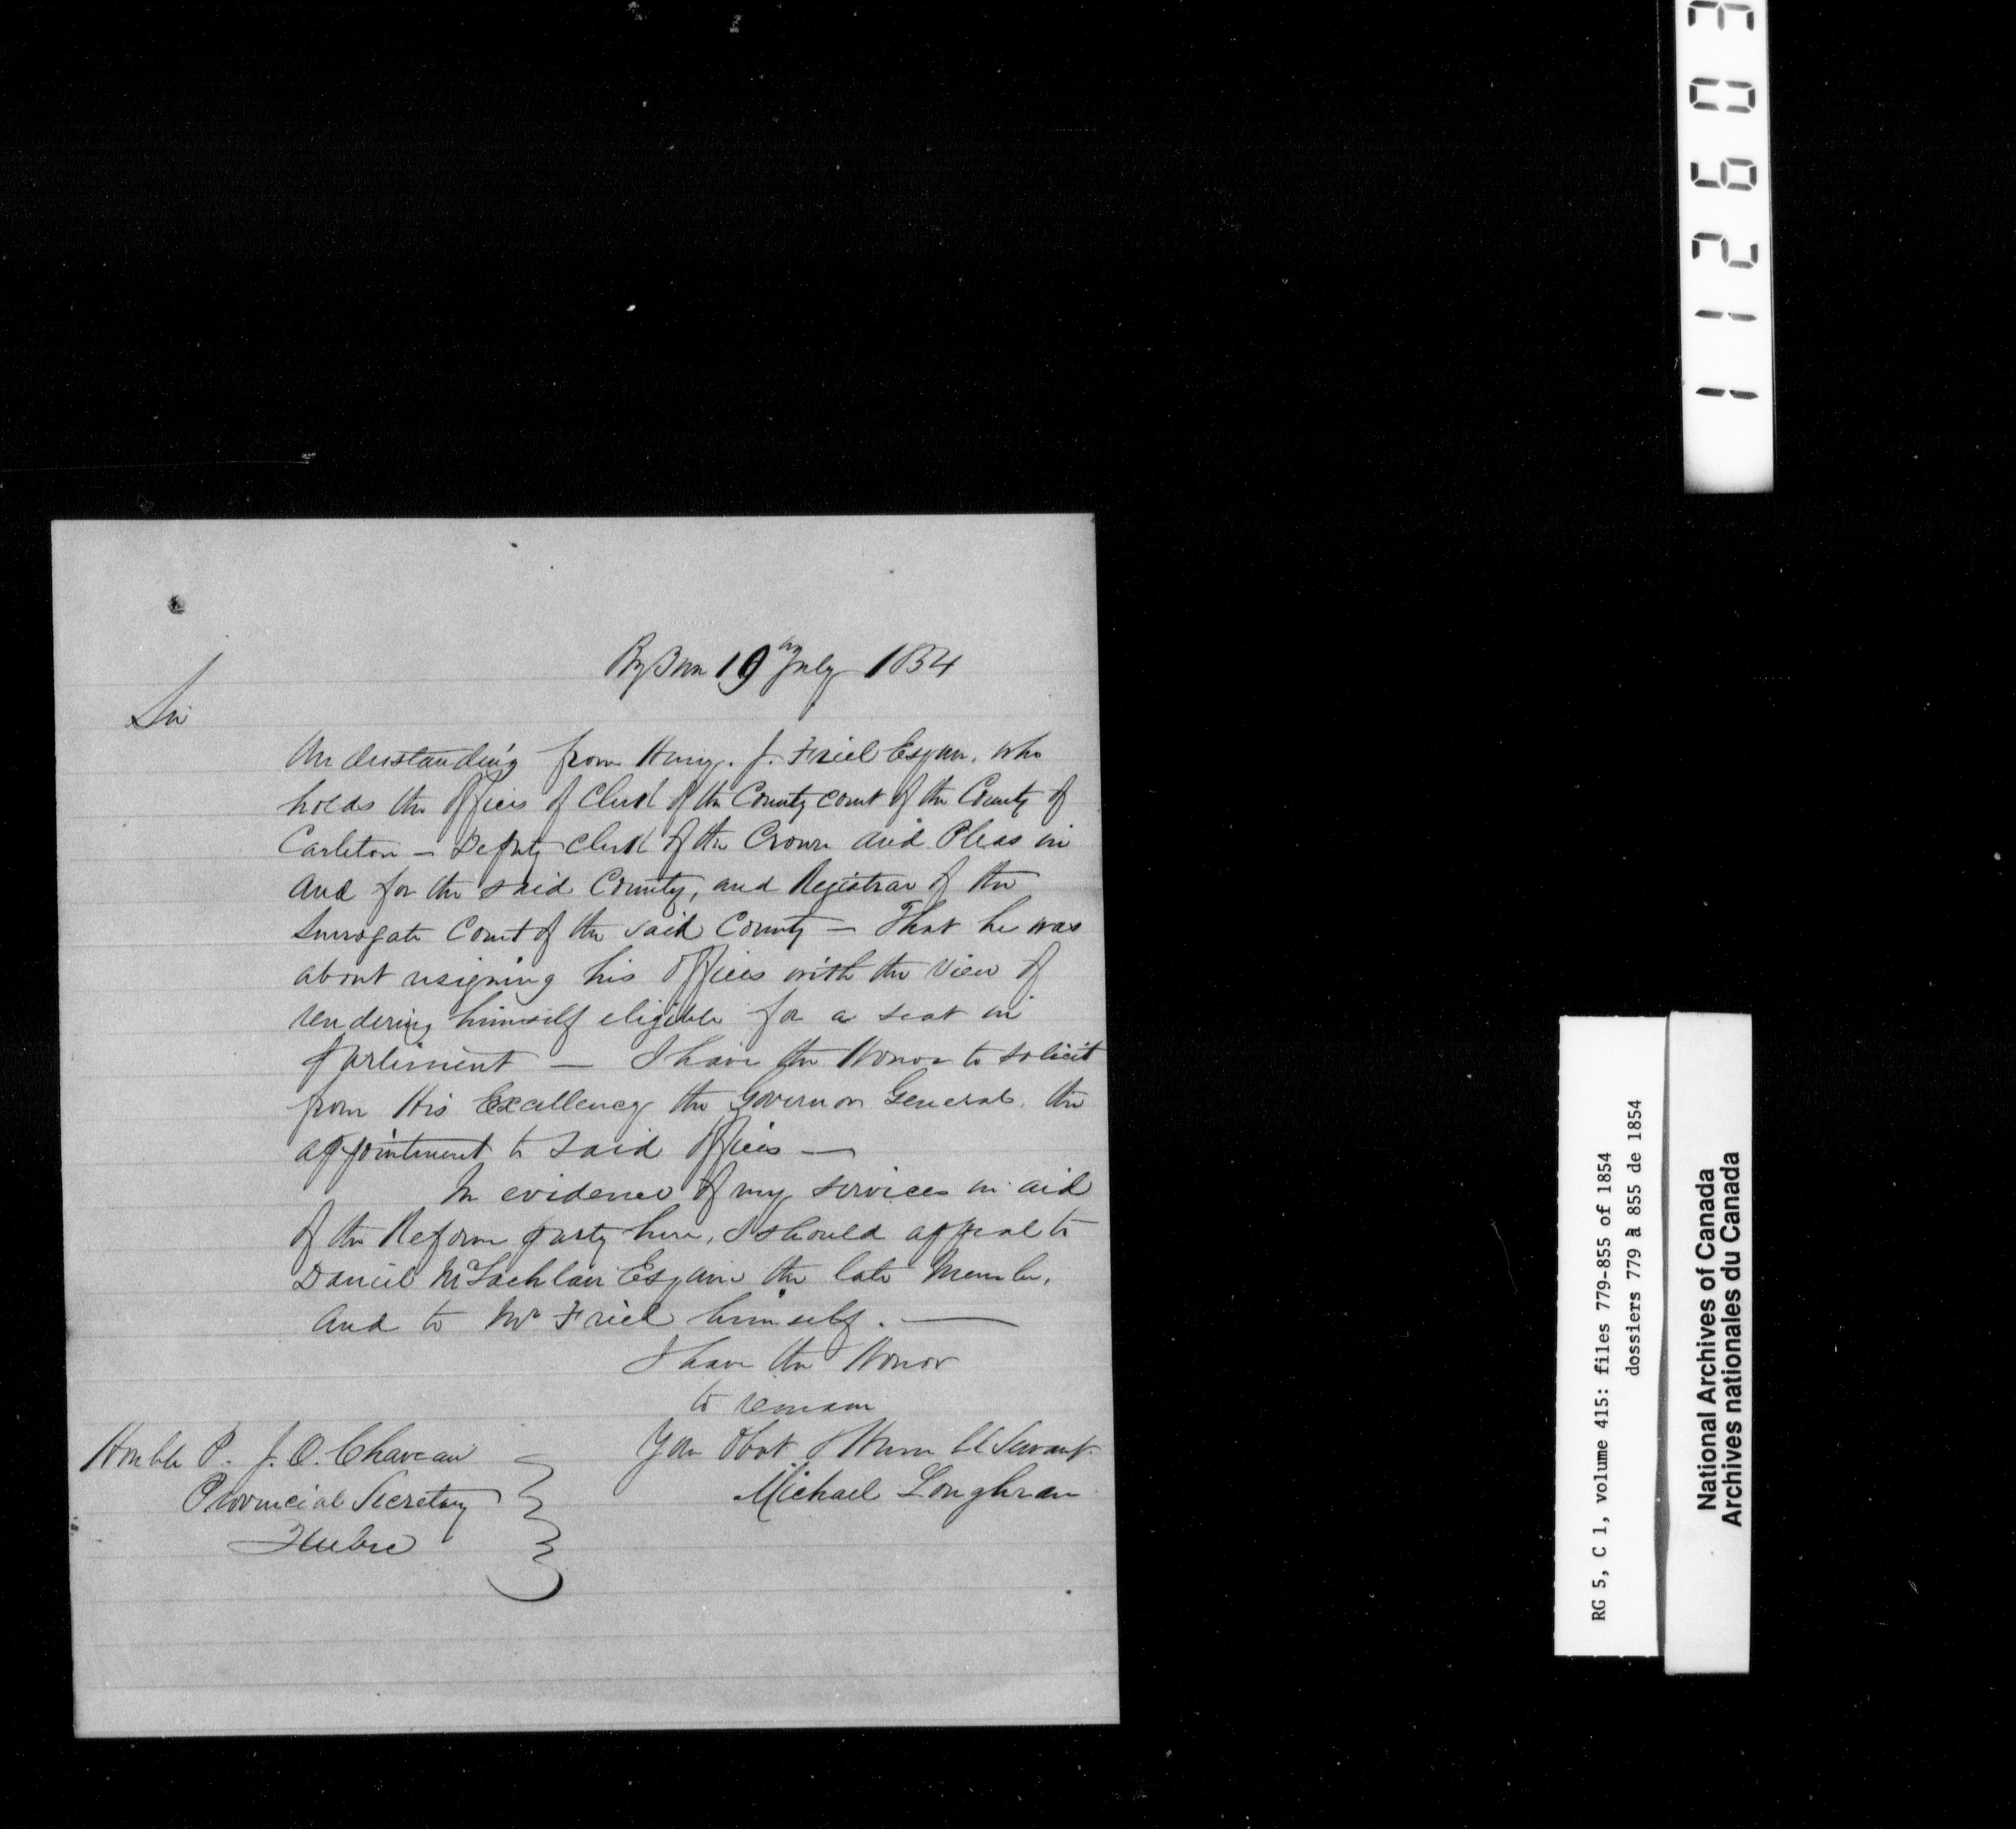 Bytown 19th July 1854
Sir
Understanding from Henry. J. Friel Esquire, who
holds the offices of Clerk of the County Court of the County of
Carleton — Deputy Clerk of the Crown and Pleas in
and for the said County, and Registrar of the
Surrogate Court of the said County — That he was
about resigning his offices with the view of
rendering himself eligible for a seat in
parliment — I have the Honor to solicit
from His Excellency the Governor General, the
appointment to said offices —
In evidence of my services in aid
of the Reform party here, I should appeal to
Daniel McLachlan Esquire the late Member,
and to Mr Friel himself. —
I have the Honor
to remain
Your Obdt & Humble Servant
Michael Loughran
Honble P. J. O. Chaveau
Provincial Secretary
Quebec
112603
RG 5, C 1, volume 415: files 779-855 of 1854
dossiers 779 à 855 de 1854
National Archives of Canada
Archives nationales du Canada